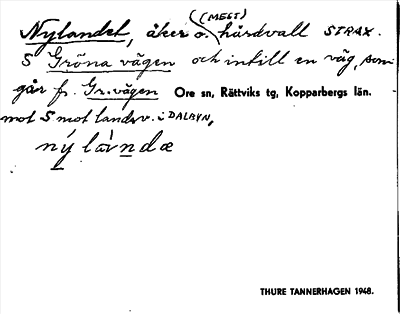 Nylandet, åker o. (MEST) hårdvall STRAX.
S Gröna vägen och intill en väg, som
går fr. Gr. vägen Ore sn, Rättviks tg, Kopparbergs län.
mot S mot landsv. i DALBYN,
ný làndæ
THURE TANNERHAGEN 1948.